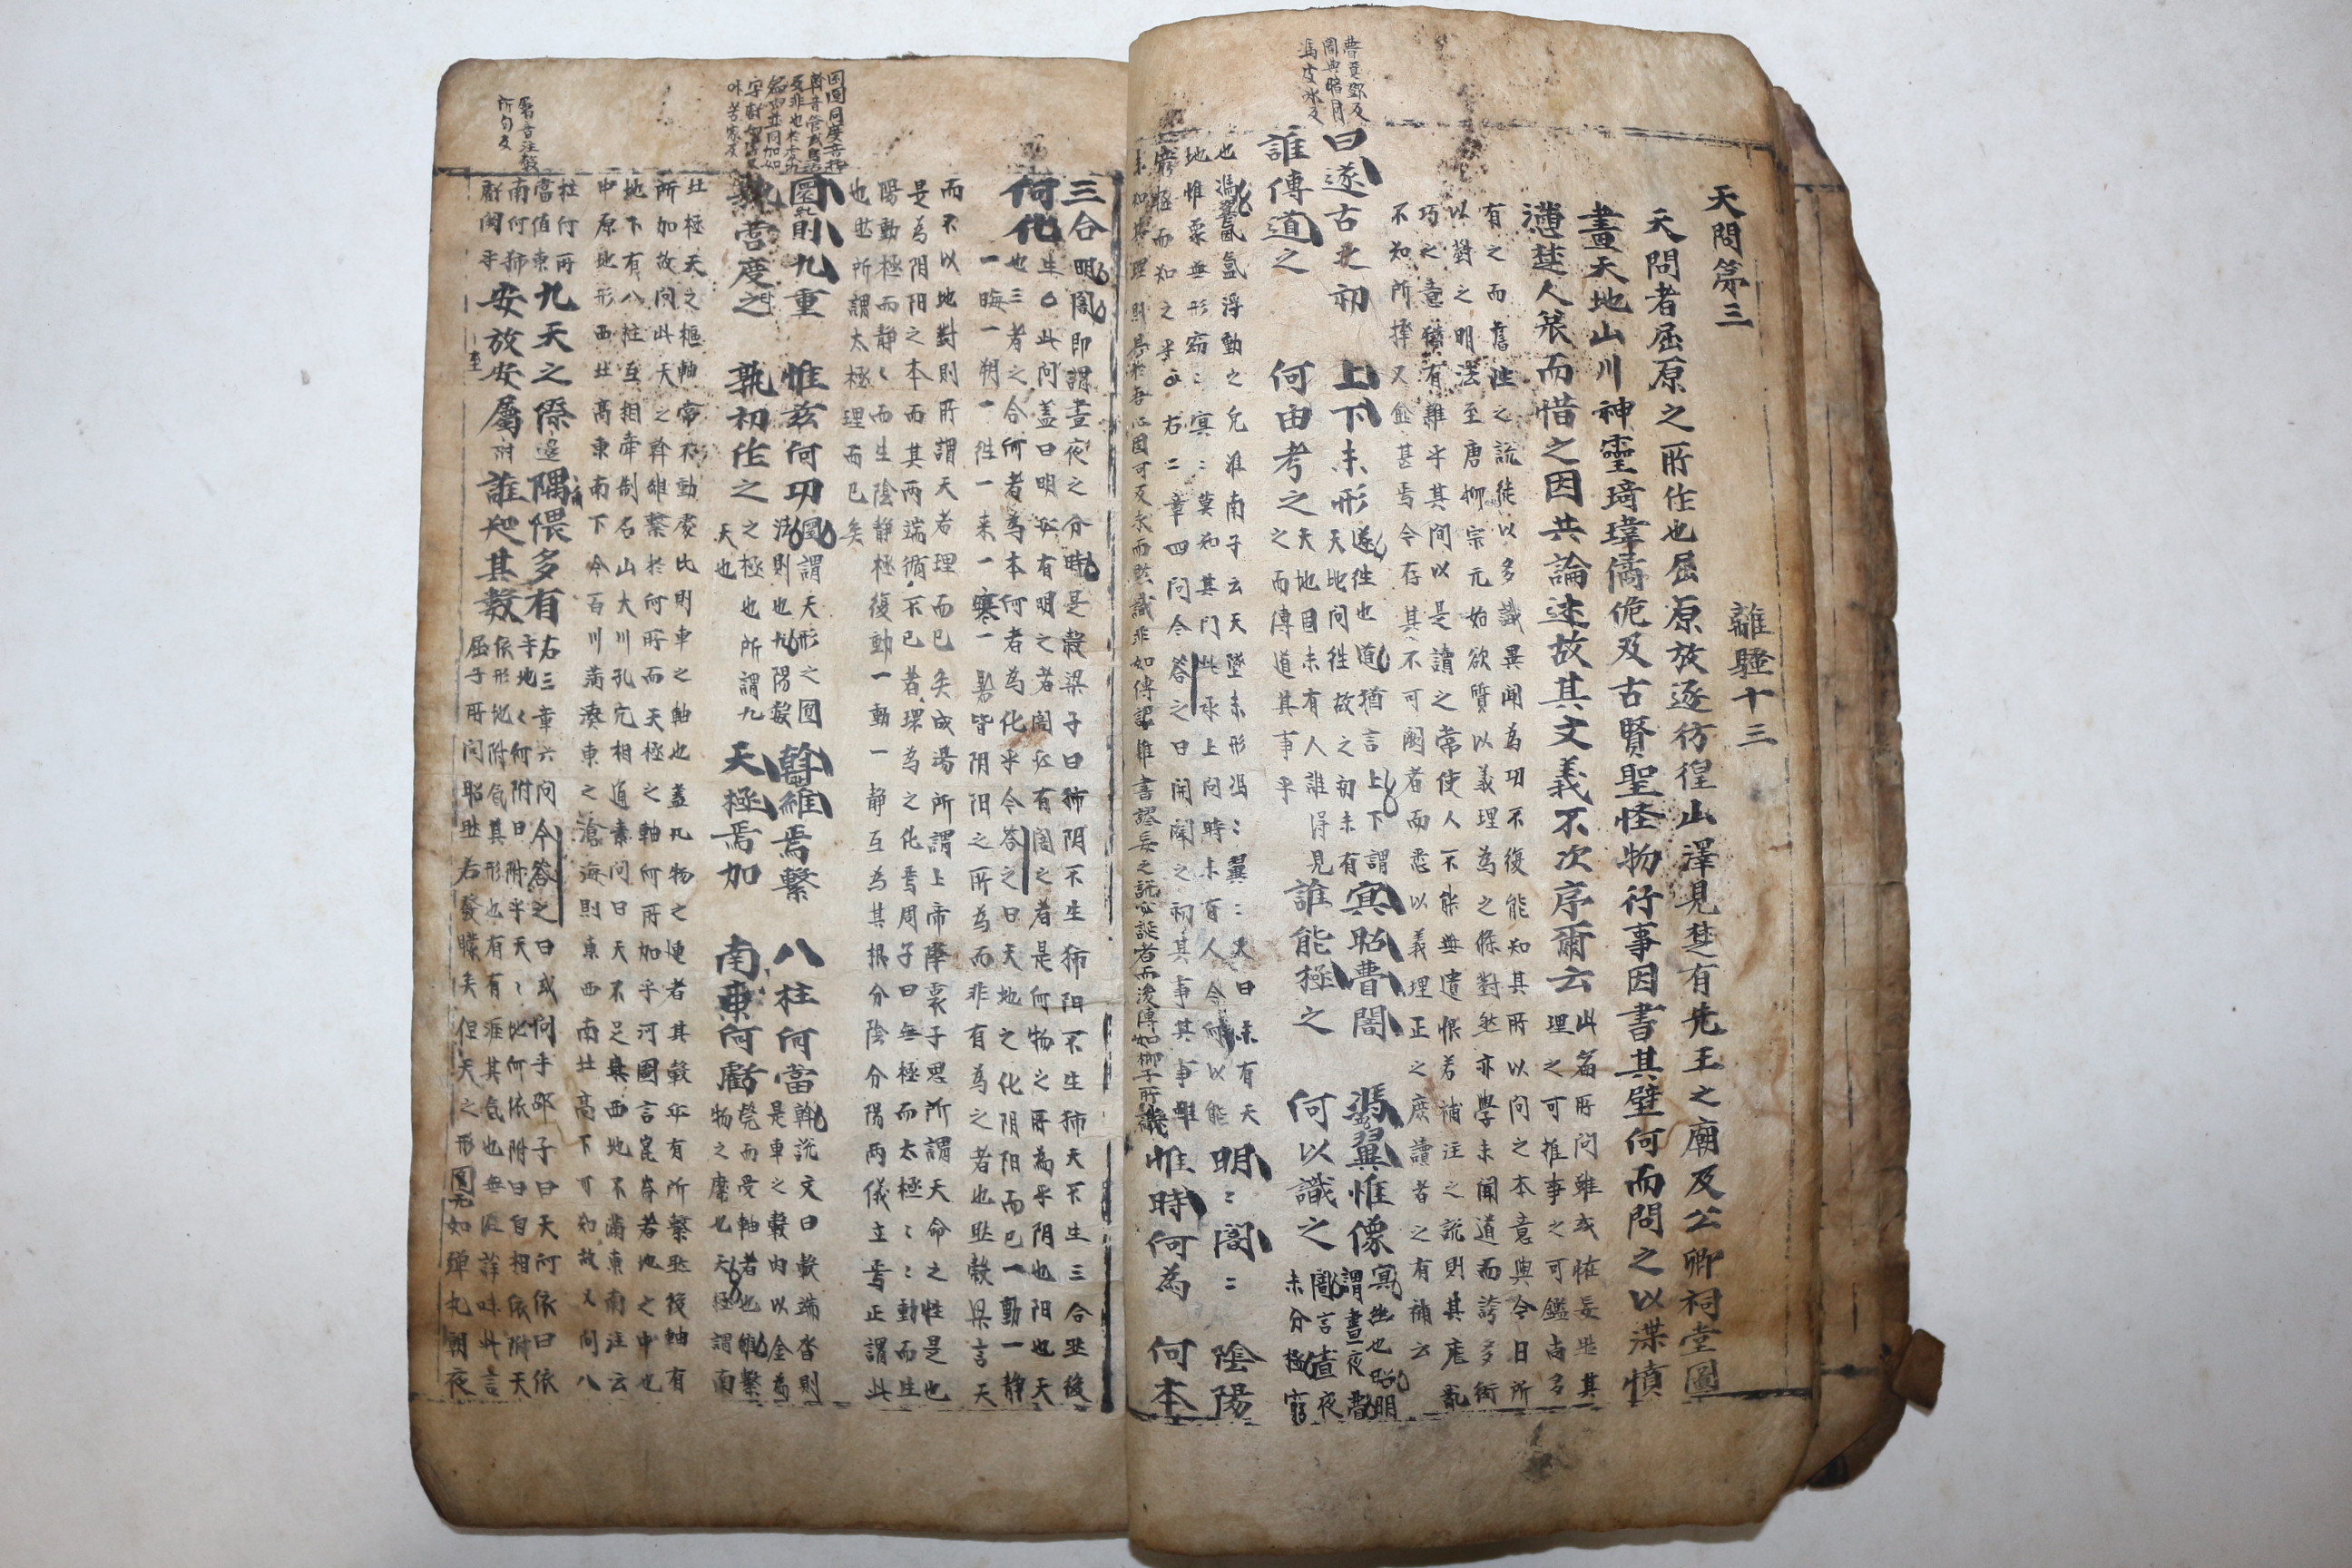 天問第三
離騷十三
天問者屈原之所作也屈原放逐彷徨山澤見楚有先王之廟及公卿祠堂圖
畫天地山川神靈琦瑋僪佹及古賢聖怪物行事因書其壁何而問之以渫憤
懣楚人哀而惜之因共論述故其文義不次序爾云
此篇所問雖或怪妄然其
理之可推事之可鑑尚多
有之而舊注之說徒以多識異聞為功不復能知其所以問之本意與今日所
以對之明法至唐柳宗元始欲質以義理為之條對然亦學未聞道而誇多衒
巧之意猶有雜乎其間以是讀之常使人不能無遺恨若補注之說則其厖亂
不知所擇又愈甚焉今存其不可闕者而悉以義理正之庶讀者之有補云
曹莫鄧反
闇與暗同
馮皮冰反
曰遂古之初
誰傳道之
上下未形
何由考之
遂往也道猶言上下謂
天地此問往故之初未有
天地固未有人誰得見
之而傳道其事乎
冥昭曹闇
誰能極之
馮翼惟像
何以識之
冥幽也昭明
謂晝夜
闇言晝夜
未分極窮
也馮翼氤氳浮動之皃淮南子云天墜未形馮〻翼〻又曰未有天
地惟像無形窈〻冥〻莫知其門此承上問時未有人今何以能
窮極而知之乎右二章四問今答之曰開闢之初其事其事雖
未知其理則具於吾心固可反求而默識非如傳記雜書謬妄之說必誕者而後傳如柳子所譏
明〻闇〻
惟時何為
陰陽
何本
三合
何化
明闇即謂晝夜之分時是穀梁子曰獨阴不生獨阳不生獨天不生三合然後
生此問盖曰明必有明之者闇必有闇之者是何物之所為乎阴也阳也天
也三者之合何者為本何者為化乎今答之曰天地之化阴阳而已一動一静
一晦一朔一徃一来一寒一暑皆阴阳之所為而非有為之者也然穀梁言天
而不以地對則所謂天者理而已矣成湯所謂上帝降衷子思所謂天命之性是也
是為阴阳之本而其两端循不已者環為之化焉周子曰無極而太極〻〻動而生
陽動極而静〻而生陰静極復動一動一静互為其根分陰分陽两儀立焉正謂此
也然所謂太極理而已矣
圜則九重
孰營度之
惟兹何功
孰初作之
圜謂天形之圜
法則也九陽数
之極也所謂九
天也
斡維焉繫
天極焉加
八柱何當
南東何虧
斡說文曰轂端沓則
是車之轂內以金為
筦而受軸者也維繫
物之縻也天極謂南
北極天之樞軸常不動處比則車之軸也盖凡物之運者其轂必有所繫然後軸有
所加故問此天之斡維繫於何所而天極之軸何所加乎河圖言崑崙者地之中也
地下有八柱互相牽制名山大川孔穴相通素問曰天不足西地不滿東南注云
中原地形西北高東南下今百川滿湊東之滄海則東西南北高下可知故又問八
柱何所
當值東
南何獨
虧闕乎
九天之際
安放安屬
隅隈多有
誰知其數
右三章六問今答之曰或問乎邵子曰天何依曰依
乎地〻何附曰附乎天〻地何依附曰自相依附天
依形地附氣其形也有涯其氣也無涯詳味此言
屈子所問昭然若發矇矣但天之形圓如弹丸朝夜
屬音注
所句反